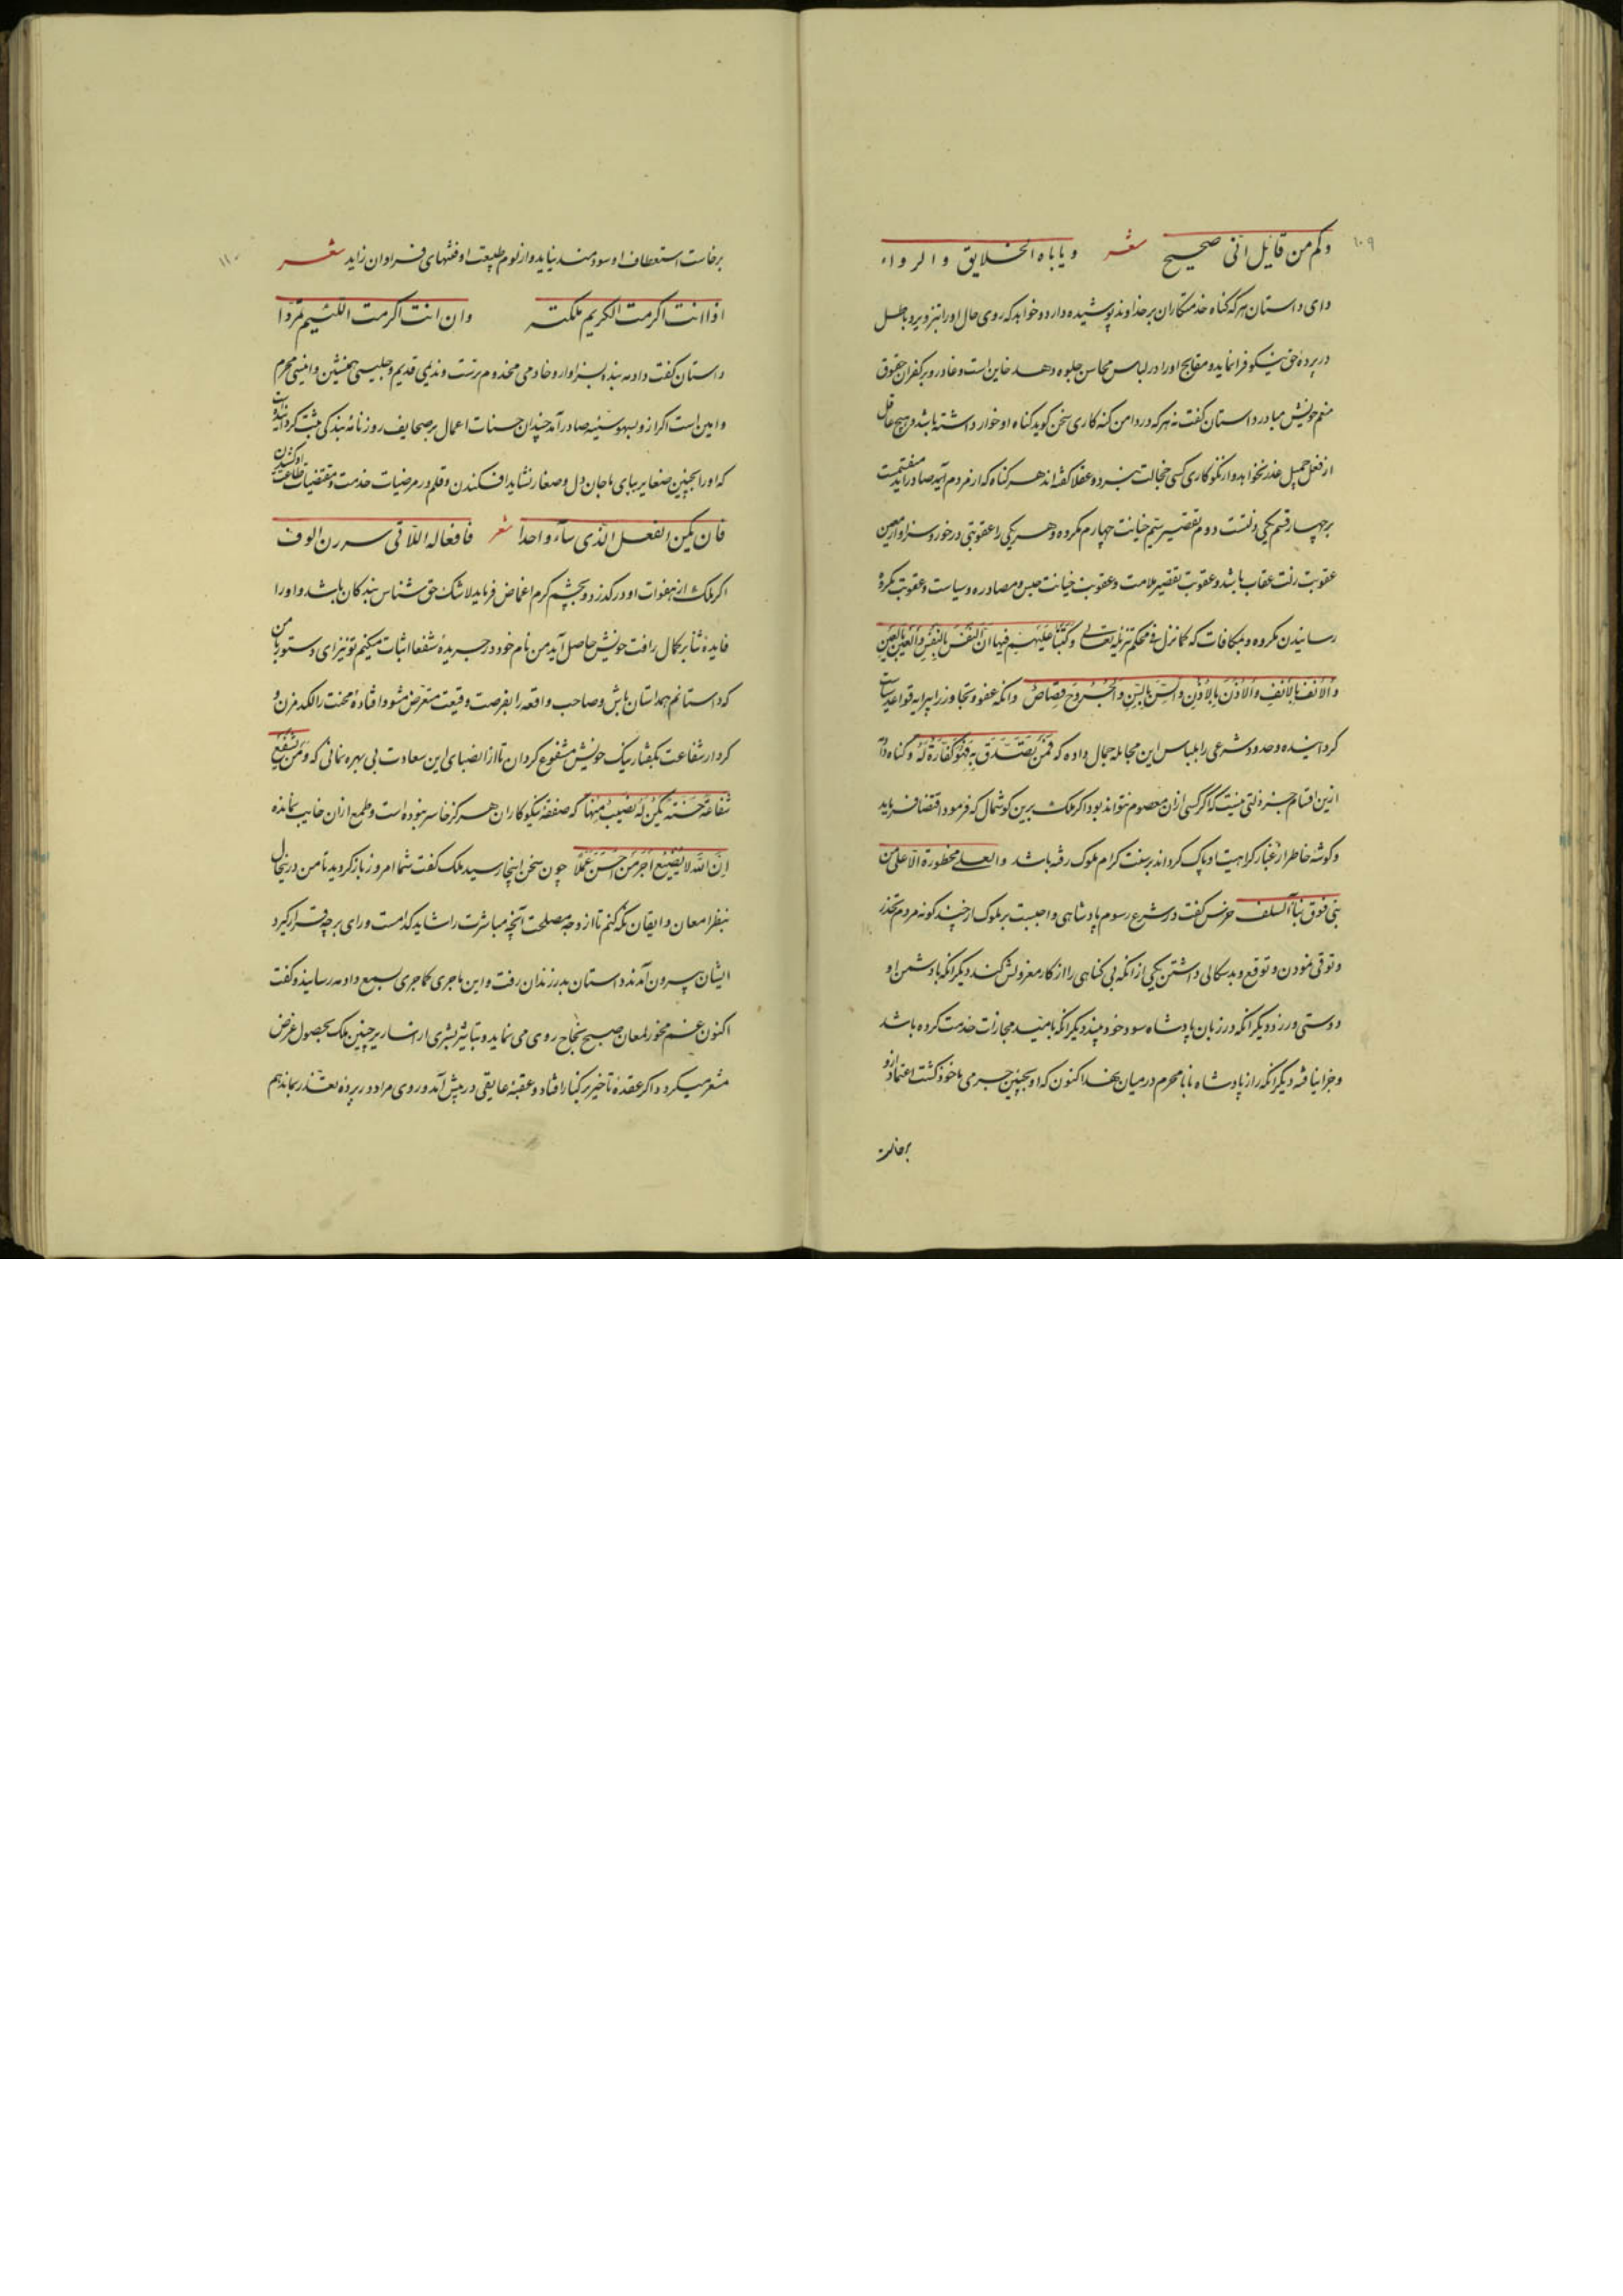 ۱۰۹
وکم من قایل انی صحیح شعر ویاباه الخلایق والرواء
دای داستان هرکه گناه خدمتکاران بر خداوند پوشیده دارد و خواهد که روی حال او را بتزویر و باطل
در پرده حق نیکو فرا نماید و مقابح او را در لباس محاسن جلوه دهد خاین است و غادر و بر کفران حقوق
منعم خویش مبادر داستان کفت نه هرکه در دامن کنه کاری سخن کوید کناه او خوار داشته باشد و هیچ عاقل
از فعل جمیل عذر نخواهد و از نکو کاری کسی خجالت نبرد و عقلا کفته‌اند هر کناه که از مردم آید صادر آید منقسمست
بر چهار قسم یکی زلتست دوم تقصیر سیم خیانت چهارم مکروه و هر یکی را عقوبتی در خور و سزاوار معین
عقوبت زلت عتاب باشد و عقوبت تقصیر ملامت و عقوبت خیانت حبس و مصادره و سیاست و عقوبت مکروه
رسانیدن مکروه و مکافات که کما نزل فی محکم تنزیله تعالی وکتبنا علیهم فیها ان النفس بالنفس والعین بالعین
والانف بالانف والاذن بالاذن والسن بالسن والجروح قصاص وانکه عفو و تجاوز را پیرایه قواعد سیاست
کردانیده و حدود شرعی را بلباس این مجامله جمال داده که فمن تصدق به فهو کفارة له و کناه دادمه
ازین اقسام جز زلتی نیست که اکر کسی ازان معصوم نتواند بود اکر ملک برین کوشمال که فرمود اقتضا فرماید
و کوشه خاطر از غبار کراهیت او پاک کرداند بر سنت کرام ملوک رفته باشد والعلی محظورة الا علی من
بنی فوق بناء السلف خرس کفت در شرع رسوم پادشاهی واجبست بر ملوک از چند کونه مردم تحذر
و توقی نمودن و توقع و بدسکالی داشتن یکی از انکه بی کناهی را از کار معزولش کند دیکر انکه با دشمن او
دوستی ورزد دیکر انکه در زیان پادشاه سود خود بیند دیکر انکه بامید مجازات خدمت کرده باشد
و جزا نیافته دیکر انکه راز پادشاه با نامحرم در میان نهد اکنون که او بچنین جرمی ماخوذ کشت اعتماد ازو
برخاست
۱۱۰
برخاست استعطاف او سودمند نیاید و از لوم طبیعت او فتنهای فراوان زاید شعر
اذا انت اکرمت الکریم ملکته وان انت اکرمت اللئیم تمردا
داستان کفت دادمه بنده بسزاوار و خادمی مخدوم پرست و ندیمی قدیم و جلیسی همنشین و انیسی محرم
و امین است اکر ازو بسهو سیئه صادر آمد چندان حسنات اعمال بر صحایف روزنامه بندکی ثبت کردانیده است
که او را بچنین صغایر بپای ماجان ذل و صغار نشاید افکندن و قلم در مرضیات خدمت و مقتضیات طاعت او کشیدن
فان یکن الفعل الذی ساء واحدا شعر فافعاله اللاتی سررن الوف
اکر ملک از هفوات او درکذرد و بچشم کرم اغماض فرماید لاشک حق شناس بندکان باشد و او را
فایده ثنا بر کمال رافت خویش حاصل آید من نام خود در جریده شفعا اثبات میکنم تو نیز ای دستور با من
که داستانم همداستان باش و صاحب واقعه را بفرصت وقیعت متعرض مشو و افتاده محنت را لکد مزن و
کردار شفاعت بکفتار نیک خویش مشفوع کردان تا از انصبای این سعادت بی بهره نمانی که ومن یشفع
شفاعة حسنة یکن له نصیب منها که صفقه نیکو کاران هرکز خاسر نبوده است و طمع ازان خایب نمانده
ان الله لا یضیع اجر من احسن عملا چون سخن اینجا رسید ملک کفت شما امروز باز کردید تا من درینحال
بنظر امعان و ایقان نکه کنم تا از وجه مصلحت آنچه مباشرت را شاید کدامست و رای بر چه قرار کیرد
ایشان بیرون آمدند داستان بدر زندان رفت و این ماجری کما جری بسمع دادمه رسانید و کفت
اکنون غم مخور لمعان صبح نجاح روی می نماید و تباشیر بشری از اساریر جبین ملک بحصول غرض
مشعر میکردد اکر عقده تاخیر بر کنار افتاد و عقبه عایقی در پیش آمد و روی مراد در پرده تعذر بماند هم